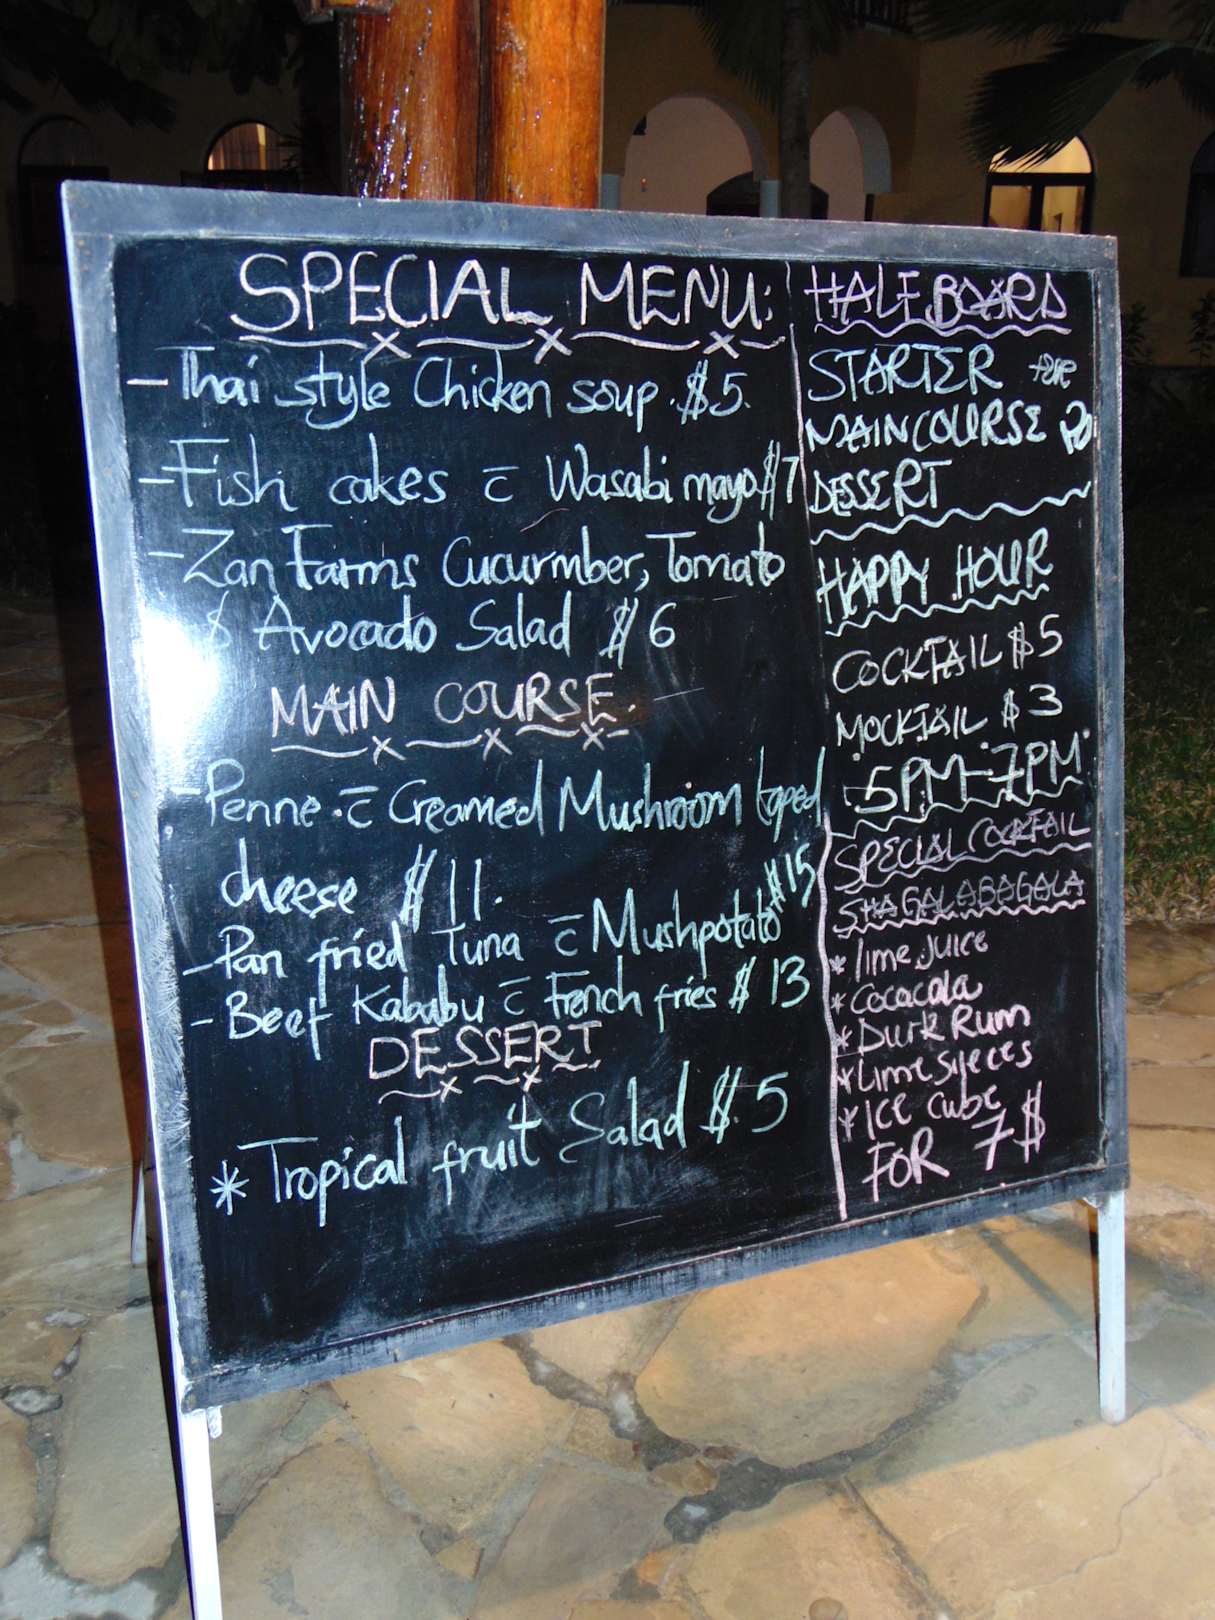 SPECIAL MENU:
- Thai style Chicken soup. $5.
- Fish cakes c̄ Wasabi mayo $7
- Zan Farms Cucurmber, Tomato
& Avocado Salad $6
MAIN COURSE.
- Penne c̄ Creamed Mushroom toped
cheese $11.
- Pan fried Tuna c̄ Mushpotato $15
- Beef Kababu c̄ French fries $13
DESSERT.
* Tropical fruit Salad $.5
HALF BOARD
STARTER
MAINCOURSE
DESSERT
HAPPY HOUR
COCKTAIL $5
MOCKTAIL $3
5PM-7PM
SPECIAL COCKTAIL
SHAGALABAGALA
* lime Juice
* Cocacola
* Durk Rum
* Lime
* Ice cube
FOR 7$